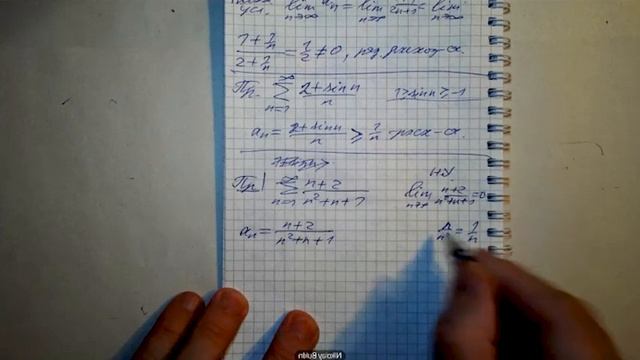 усл. lim aₙ = lim = lim
n→∞ n→∞ 2n+1 n→∞
(1 + 1/n)/(2 + 1/n) = 1/2 ≠ 0, ряд расход-ся.
Пр. ∑_{n=1}^{∞} (2+sin n)/n 1 ≥ sin n ≥ -1
aₙ = (2+sin n)/n ≥ 1/n - расх-ся.
Пр| ∑_{n=1}^{∞} (n+2)/(n²+n+1) НУ lim_{n→∞} (n+2)/(n²+n+1) = 0
aₙ = (n+2)/(n²+n+1) n/n² = 1/n
Nikolay Butin